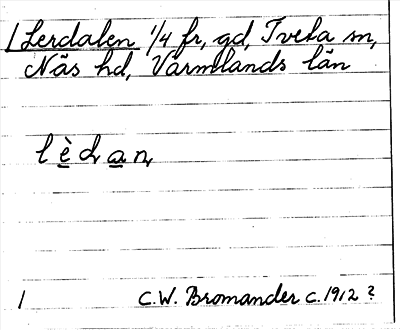 Lerdalen 1/4 fr, gd, Tveta sn,
Näs hd, Värmlands län
l è d a n
1 C.W. Bromander c. 1912 ?